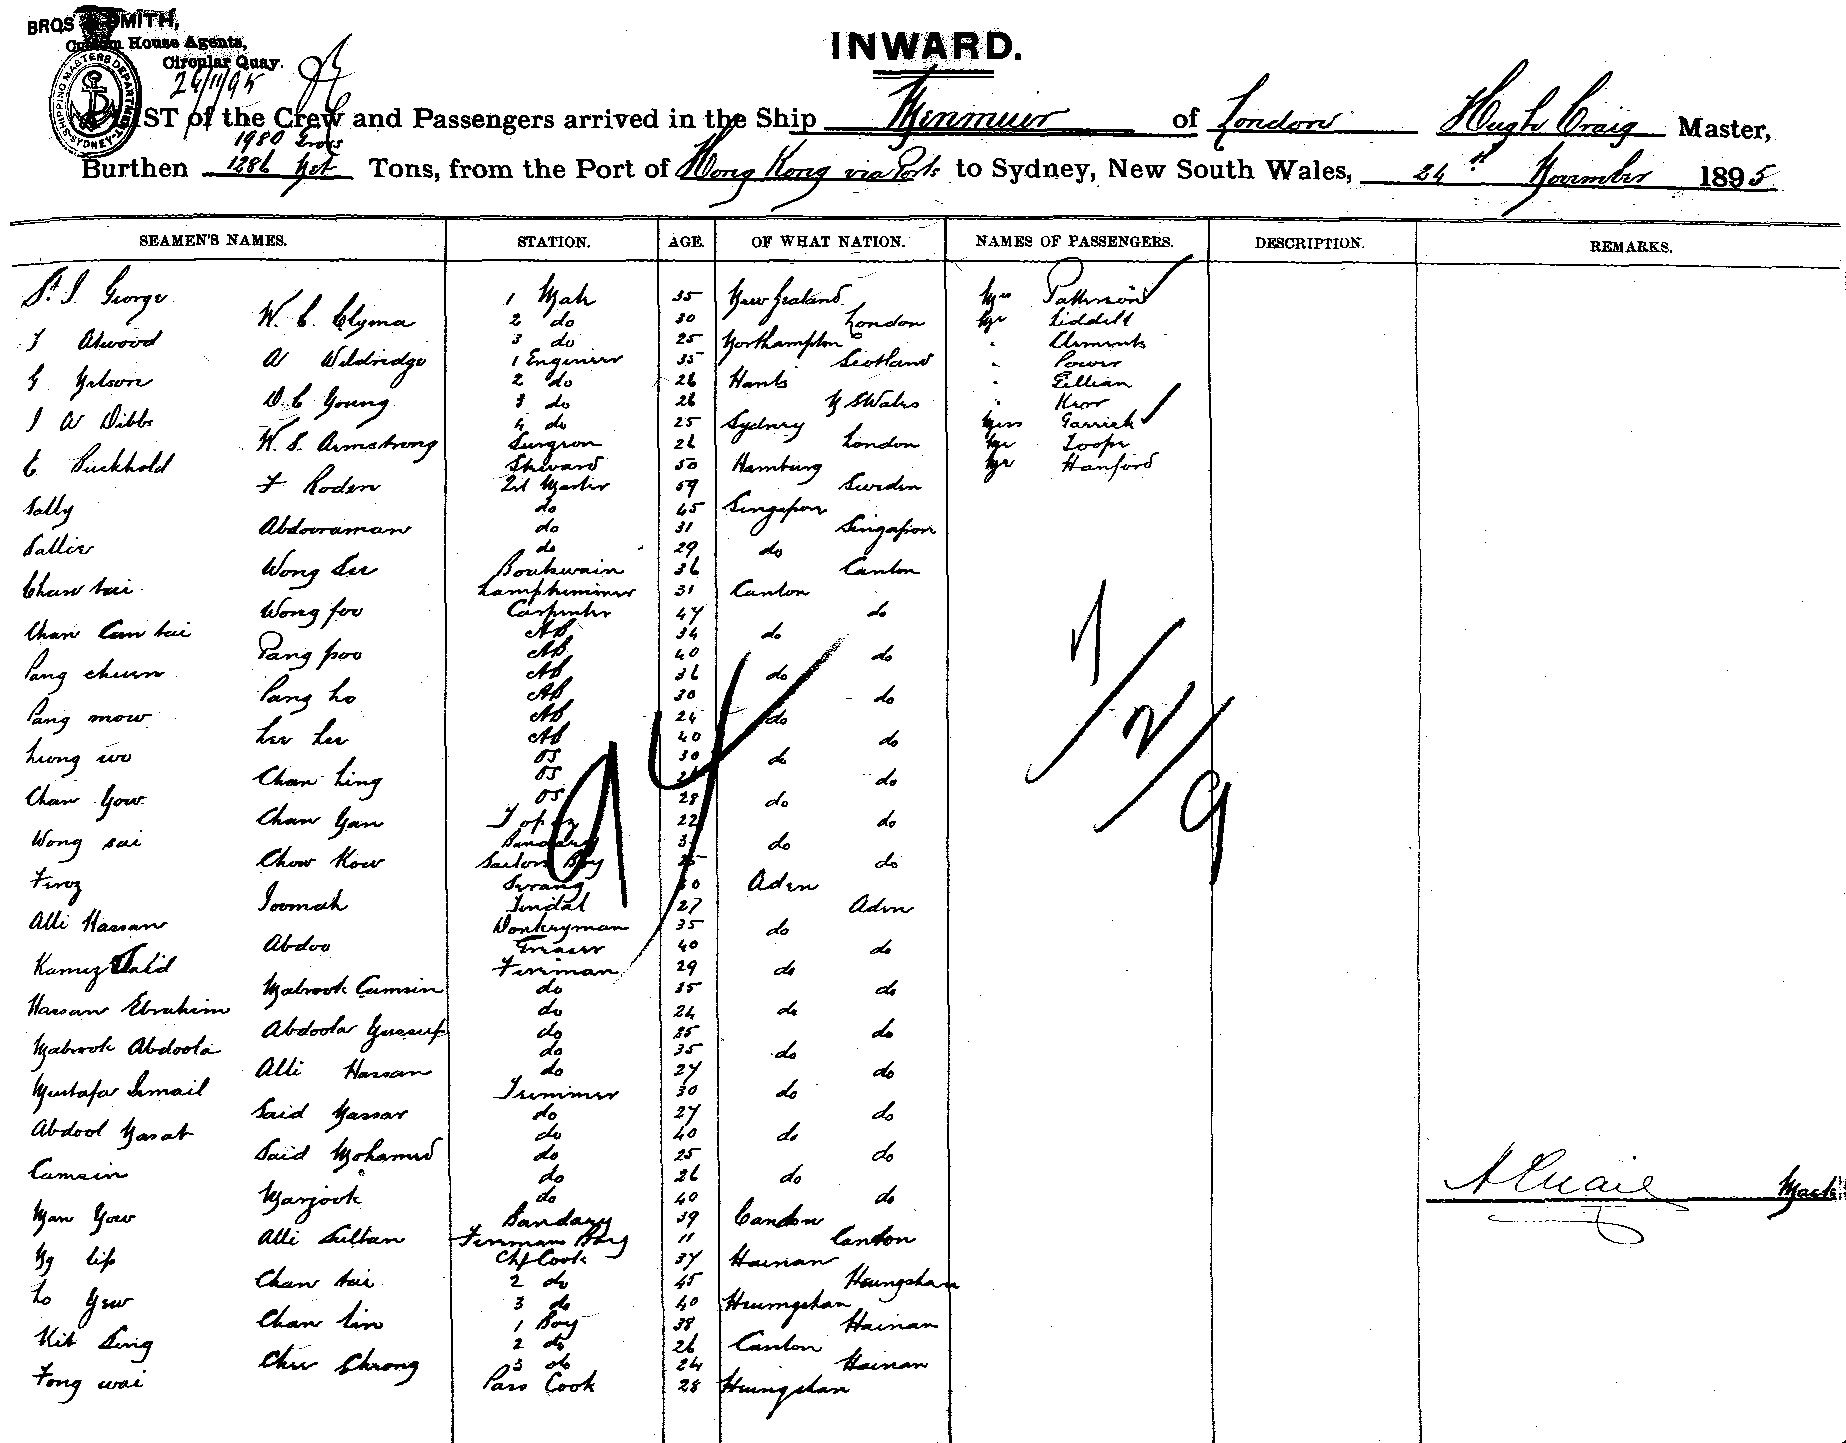 BROS & SMITH,
Custom House Agents,
Circular Quay.
26/11/95
SHIPPING MASTERS DEPARTMENT SYDNEY
INWARD.
LIST of the Crew and Passengers arrived in the Ship Menmuir of London Hugh Craig Master,
1980 Gross
Burthen 1286 Net Tons, from the Port of Hong Kong via Ports to Sydney, New South Wales, 24th November 1895
SEAMEN'S NAMES. STATION. AGE. OF WHAT NATION. NAMES OF PASSENGERS. DESCRIPTION. REMARKS.
St. J. George 1 Mate 35 New Zealand Mrs Patterson
W. C. Clyma 2 do 30 London Mr Liddell
J Atwood 3 do 25 Northampton " Clements
A Wildridge 1 Engineer 35 Scotland " Power
G Nelson 2 do 26 Hants " Gillian
D. C Young 3 do 26 N S Wales " Kerr
J A Dibbs 4 do 25 Sydney Miss Garrick
W. S. Armstrong Surgeon 26 London Mr Looper
C Buckhold Steward 50 Hamburg Mr Hanford
F Roden Qt Master 59 Sweden
Sally do 45 Singapore
Abdooraman do 31 Singapore
Sallie do 29 do
Wong See Boatswain 36 Canton
Chaw tai Lamptrimmer 31 Canton
Wong foo Carpenter 47 do
Chan Cam tai AB 34 do
Pang poo AB 40 do
Pang chuen AB 36 do
Pang ho AB 30 do
Pang mow AB 24 do
Lee Lee AB 40 do
Leong wo OS 30 do
Chan Ling OS do
Chan Gow OS 28 do
Chan Yan Topaz 22 do
Wong sai Bandary 3 do
Chow Kow Sailors Boy 25 do
Feroz Serang 30 Aden
Joomah Tindal 27 Aden
Alli Hassan Donkeyman 35 do
Abdoo Greaser 40 do
Kamiz Said Fireman 29 do
Mabrook Camsin do 35 do
Hassan Ebrahim do 24 do
Abdoola Yussuf do 25 do
Mabrook Abdoola do 35 do
Alli Hassan do 27 do
Mustafa Ismail Trimmer 30 do
Said Nassar do 27 do
Abdool Nasat do 40 do
Said Mohamed do 25 do
Camsin do 26 do
Marzook do 40 do
Man Yow Bandary 39 Canton
Alli Sultan Firemans Boy 11 Canton
Ng lip Chf Cook 37 Hainan
Chan tai 2 do 45 Heungshan
Lo Yew 3 do 40 Heungshan
Chan tin 1 Boy 38 Hainan
Kit Sing 2 do 26 Canton
Chu Cheong 3 do 24 Hainan
Fong wai Pass Cook 28 Heungshan
1/2/9
H Craig Master